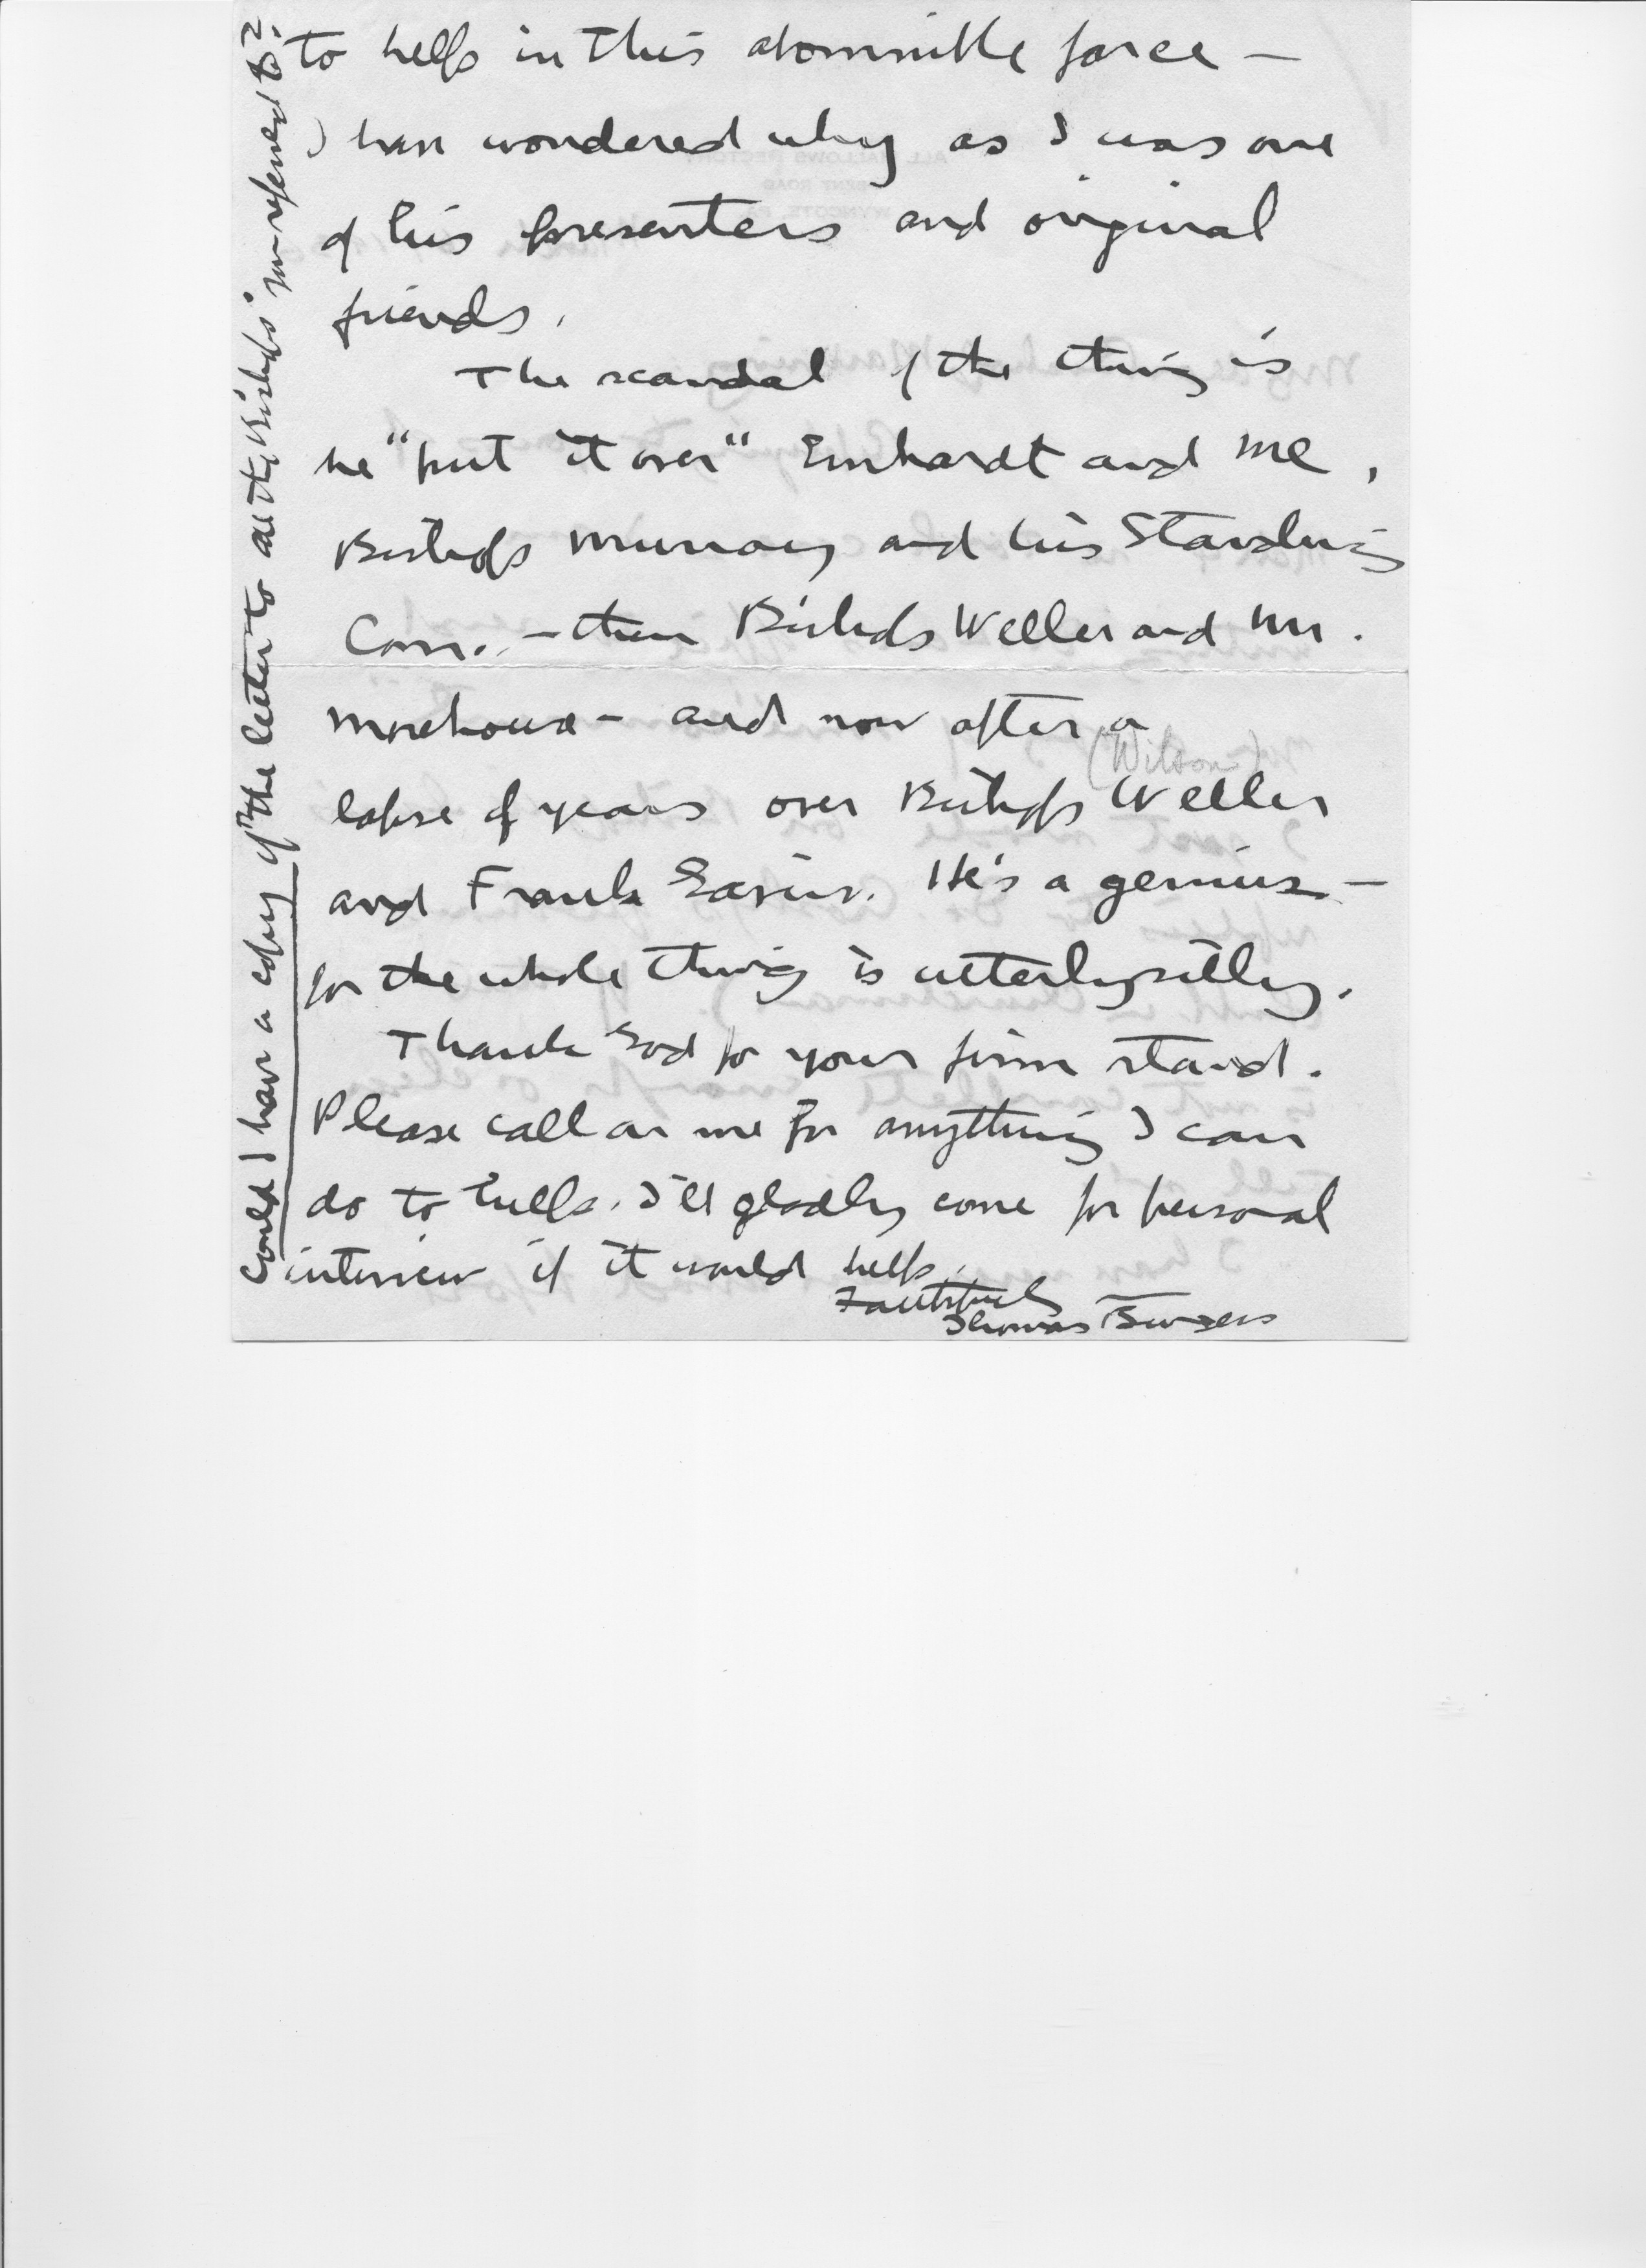 to help in this abominable farce —
I have wondered why as I was one
of his presenters and original
friends.
The scandal of the thing is
he "put it over" Emhardt and me,
Bishop Murray and his Standing
Com. — then Bishop Weller and Mr.
Morehouse — and now after a
lapse of years over Bishop Weller
(Wilson)
and Frank Gavin. He's a genius —
for the whole thing is utterly silly.
Thank God for your firm stand.
Please call on me for anything I can
do to help. I'll gladly come for personal
interview if it would help.
Faithfully
Thomas Burgess
Could I have a copy of the letter to all the Bishops you referred to?